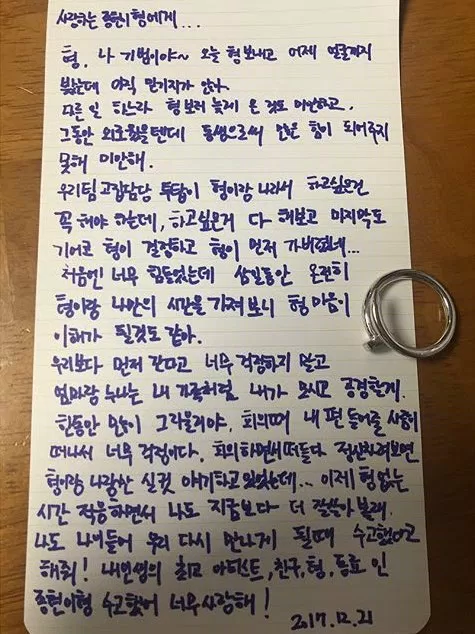 사랑하는 종현이형에게...
형, 나 기범이야~ 오늘 형 보내고 어제 얼굴까지
봤는데 아직 믿기지가 않아.
다른 일 하느라 형 보러 늦게 온 것도 미안하고,
그동안 외로웠을텐데 동생으로써 많은 힘이 되어주지
못해 미안해.
우리팀 고집담당 투탑이 형이랑 나라서 하고싶은건
꼭 해야 하는데, 하고싶은거 다 해보고 마지막도
기어코 형이 결정하고 형이 먼저 가버렸네...
처음엔 너무 힘들었는데 삼일동안 온전히
형이랑 나만의 시간을 가져보니 형 마음이
이해가 될것도 같아.
우리보다 먼저 간다고 너무 걱정하지 말고
엄마랑 누나는 내 가족처럼 내가 모시고 공경할게.
한동안 많이 그리울거야, 회의때 내 편 들어줄 사람이
떠나서 너무 걱정이다. 회의하면서 떠들다 정신차려보면
형이랑 나랑만 실컷 얘기하고 있었는데... 이제 형 없는
시간 적응하면서 나도 지금보다 더 잘살아 볼래.
나도 나이들어 우리 다시 만나게 될때 수고했다고
해줘! 내 인생의 최고 아티스트, 친구, 형, 동료 인
종현이형 수고했어 너무 사랑해!
2017.12.21